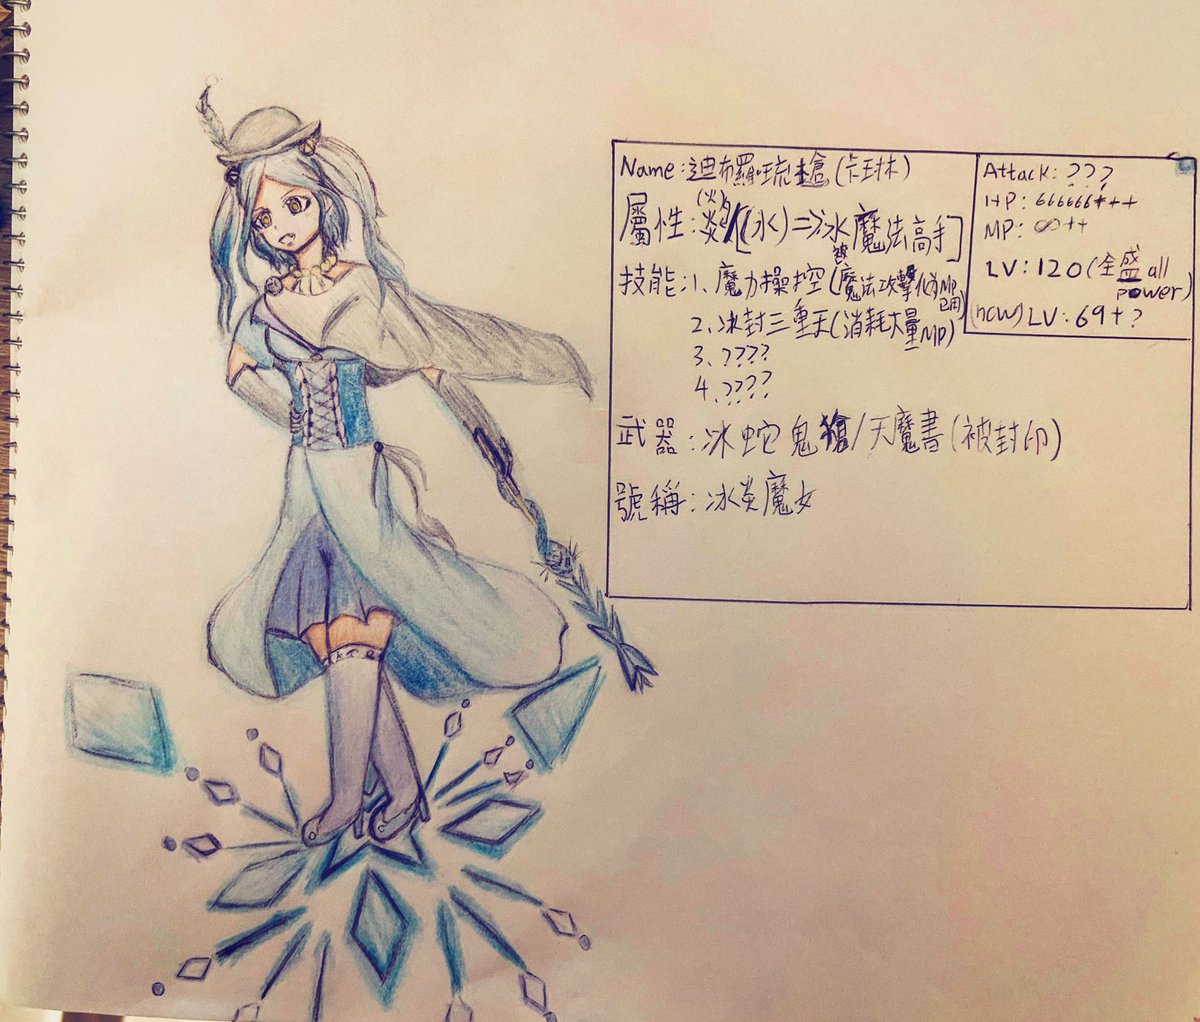 Name:迪布羅琉槍(卡琳)
屬性:炎(火)/[(水)⇒冰魔法高手]
技能:1、魔力操控(被魔法攻擊化為MP已用)
2、冰封三重天(消耗大量MP)
3、????
4、????
武器:冰蛇鬼槍/天魔書(被封印)
號稱:冰炎魔女
Attack: ???
HP: 666666+++
MP: ∞++
LV: 120(全盛all power)
(now)LV: 69+?